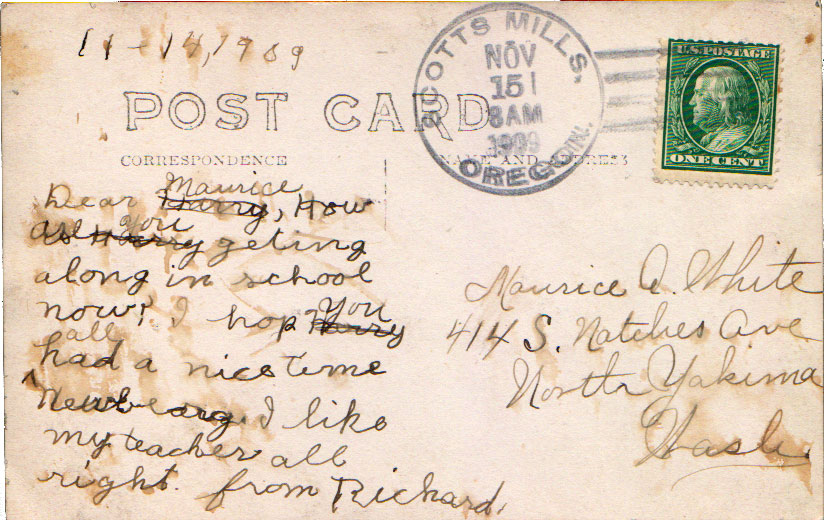 11-14, 1909
POST CARD
CORRESPONDENCE
NAME AND ADDRESS
SCOTTS MILLS,
NOV
15
8 AM
1909
OREGON.
U.S. POSTAGE
ONE CENT
Maurice
Dear Harry, How
you
are Harry geting
along in school
now? I hop Harry
You
all
had a nice teme
Newberg. I like
my teacher all
right. from Richard.
Maurice A. White
414 S. Natches Ave
North Yakima
Wash.